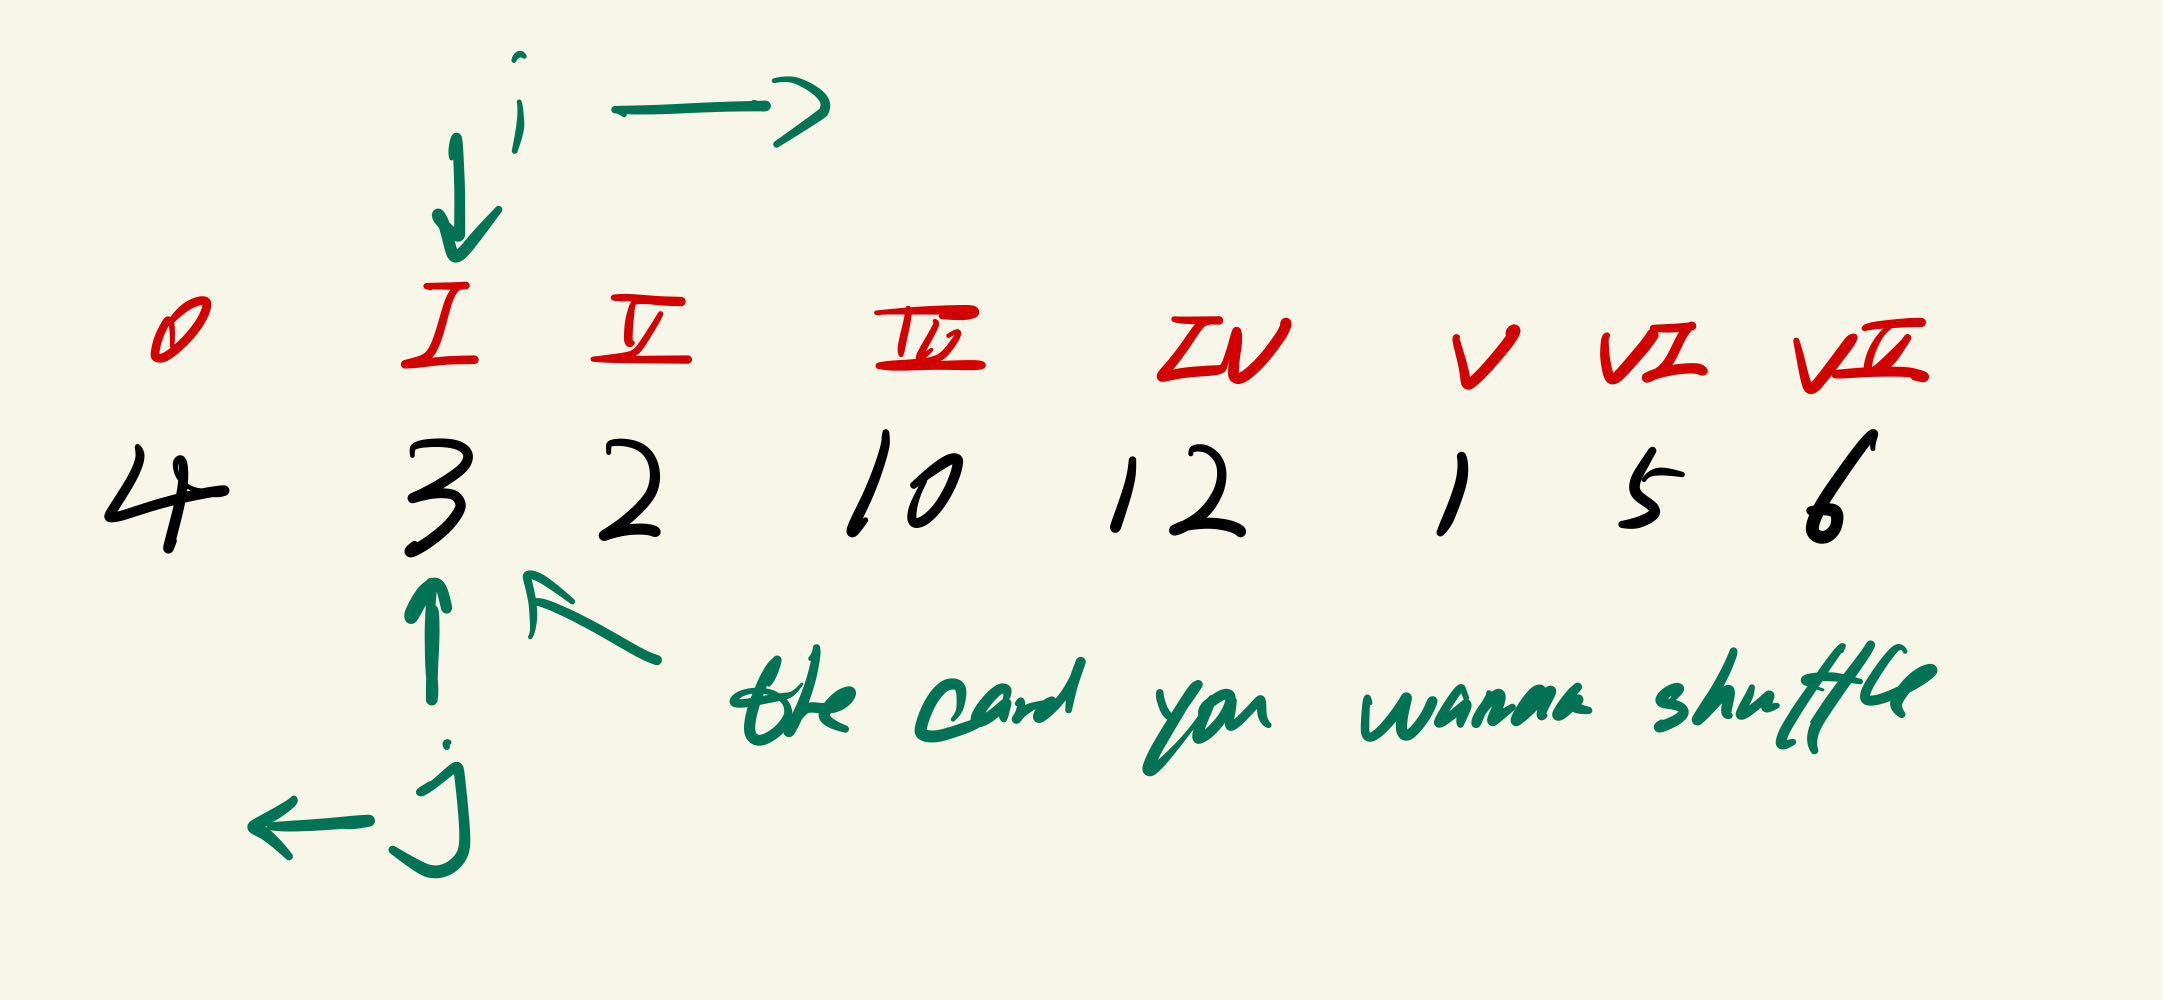 i
0 I II III IV V VI VII
4 3 2 10 12 1 5 6
the card you wanna shuffle
j